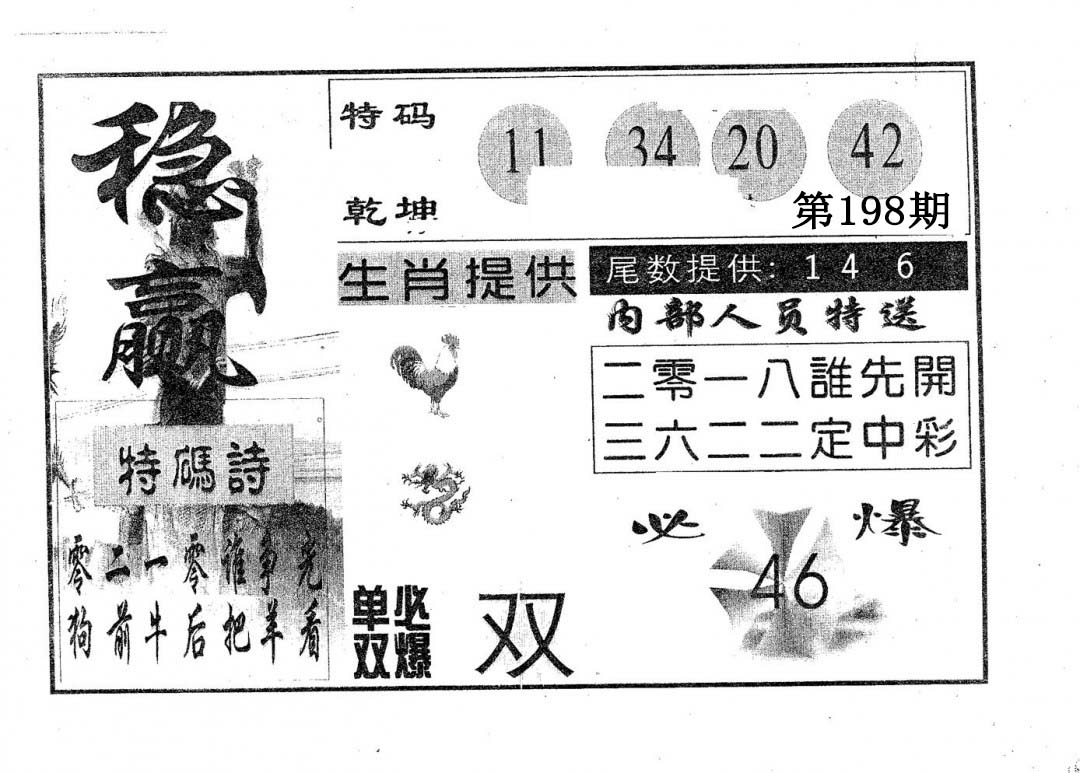 稳赢
特码 11 34 20 42
乾坤
第198期
生肖提供
尾数提供: 1 4 6
内部人员特送
二零一八誰先開
三六二二定中彩
特碼詩
零二一零谁争光
狗前牛后把羊看
必爆
46
单双必爆
双